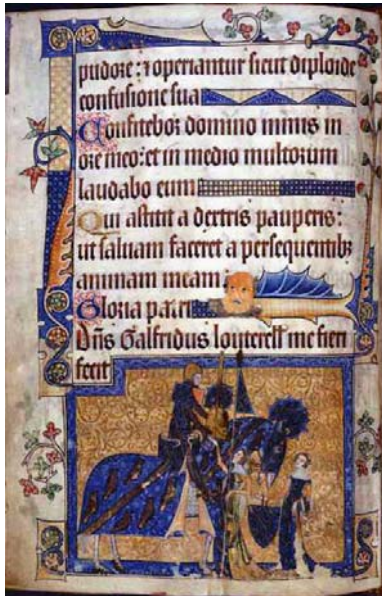 pudore: ⁊ operiantur sicut diploide
confusione sua
Confitebor domino nimis in
ore meo: et in medio multorum
laudabo eum
Qui astitit a dextris pauperis:
ut saluam faceret a persequentibꝫ
animam meam
Gloria patri
Dñs Galfridus louterell me fieri
fecit